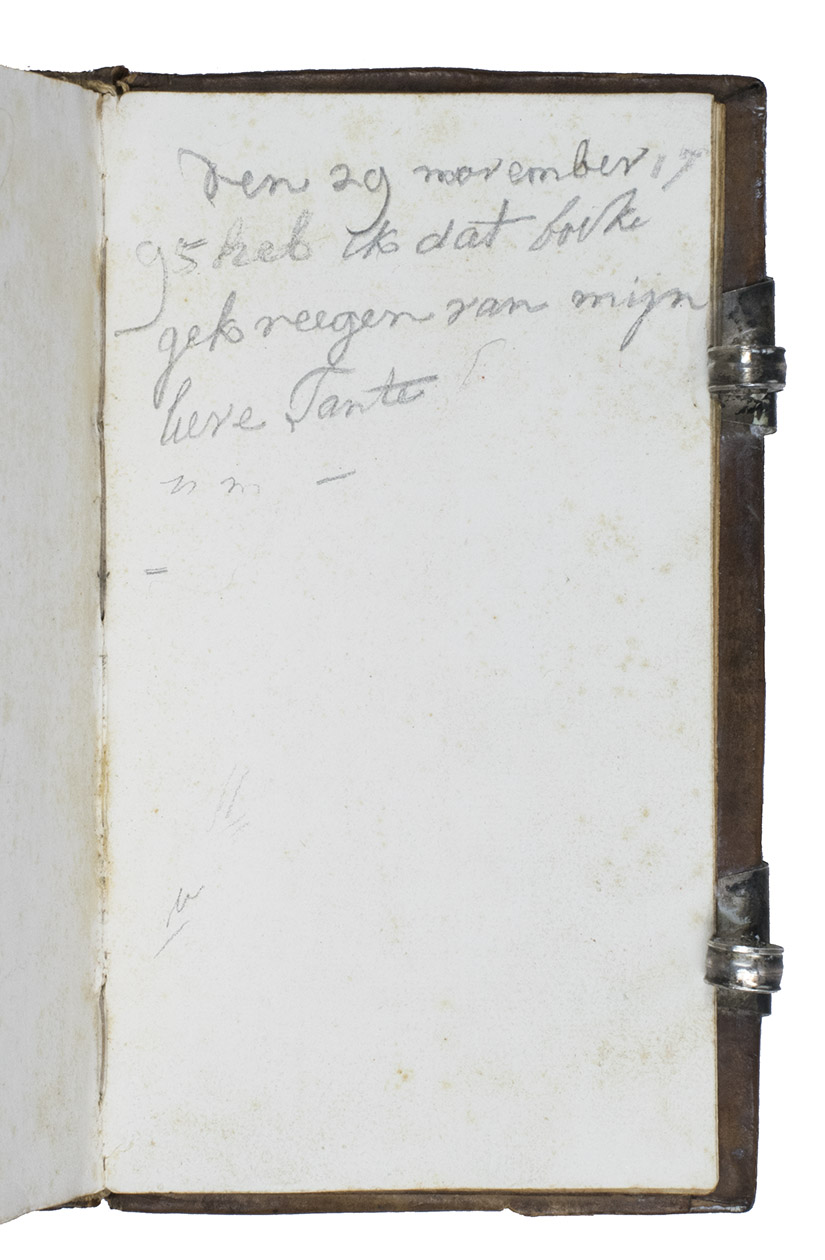 Den 29 november 17
95 heb ik dat boike
gekreegen van mijn
lieve Tante